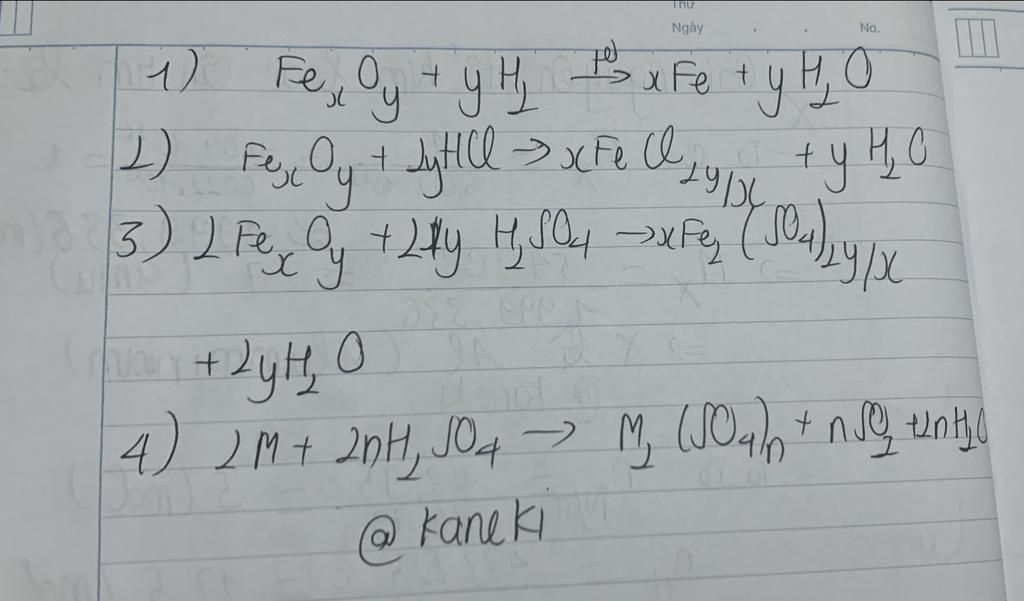 Thứ
Ngày . . No.
1) FeₓO_y + yH₂ →(t⁰) xFe + yH₂O
2) FeₓO_y + 2yHCl → xFeCl_2y/x + yH₂O
3) 2FeₓO_y + 2y H₂SO₄ → xFe₂(SO₄)_2y/x
+ 2yH₂O
4) 2M + 2nH₂SO₄ → M₂(SO₄)n + nSO₂ + 2nH₂O
@kaneki